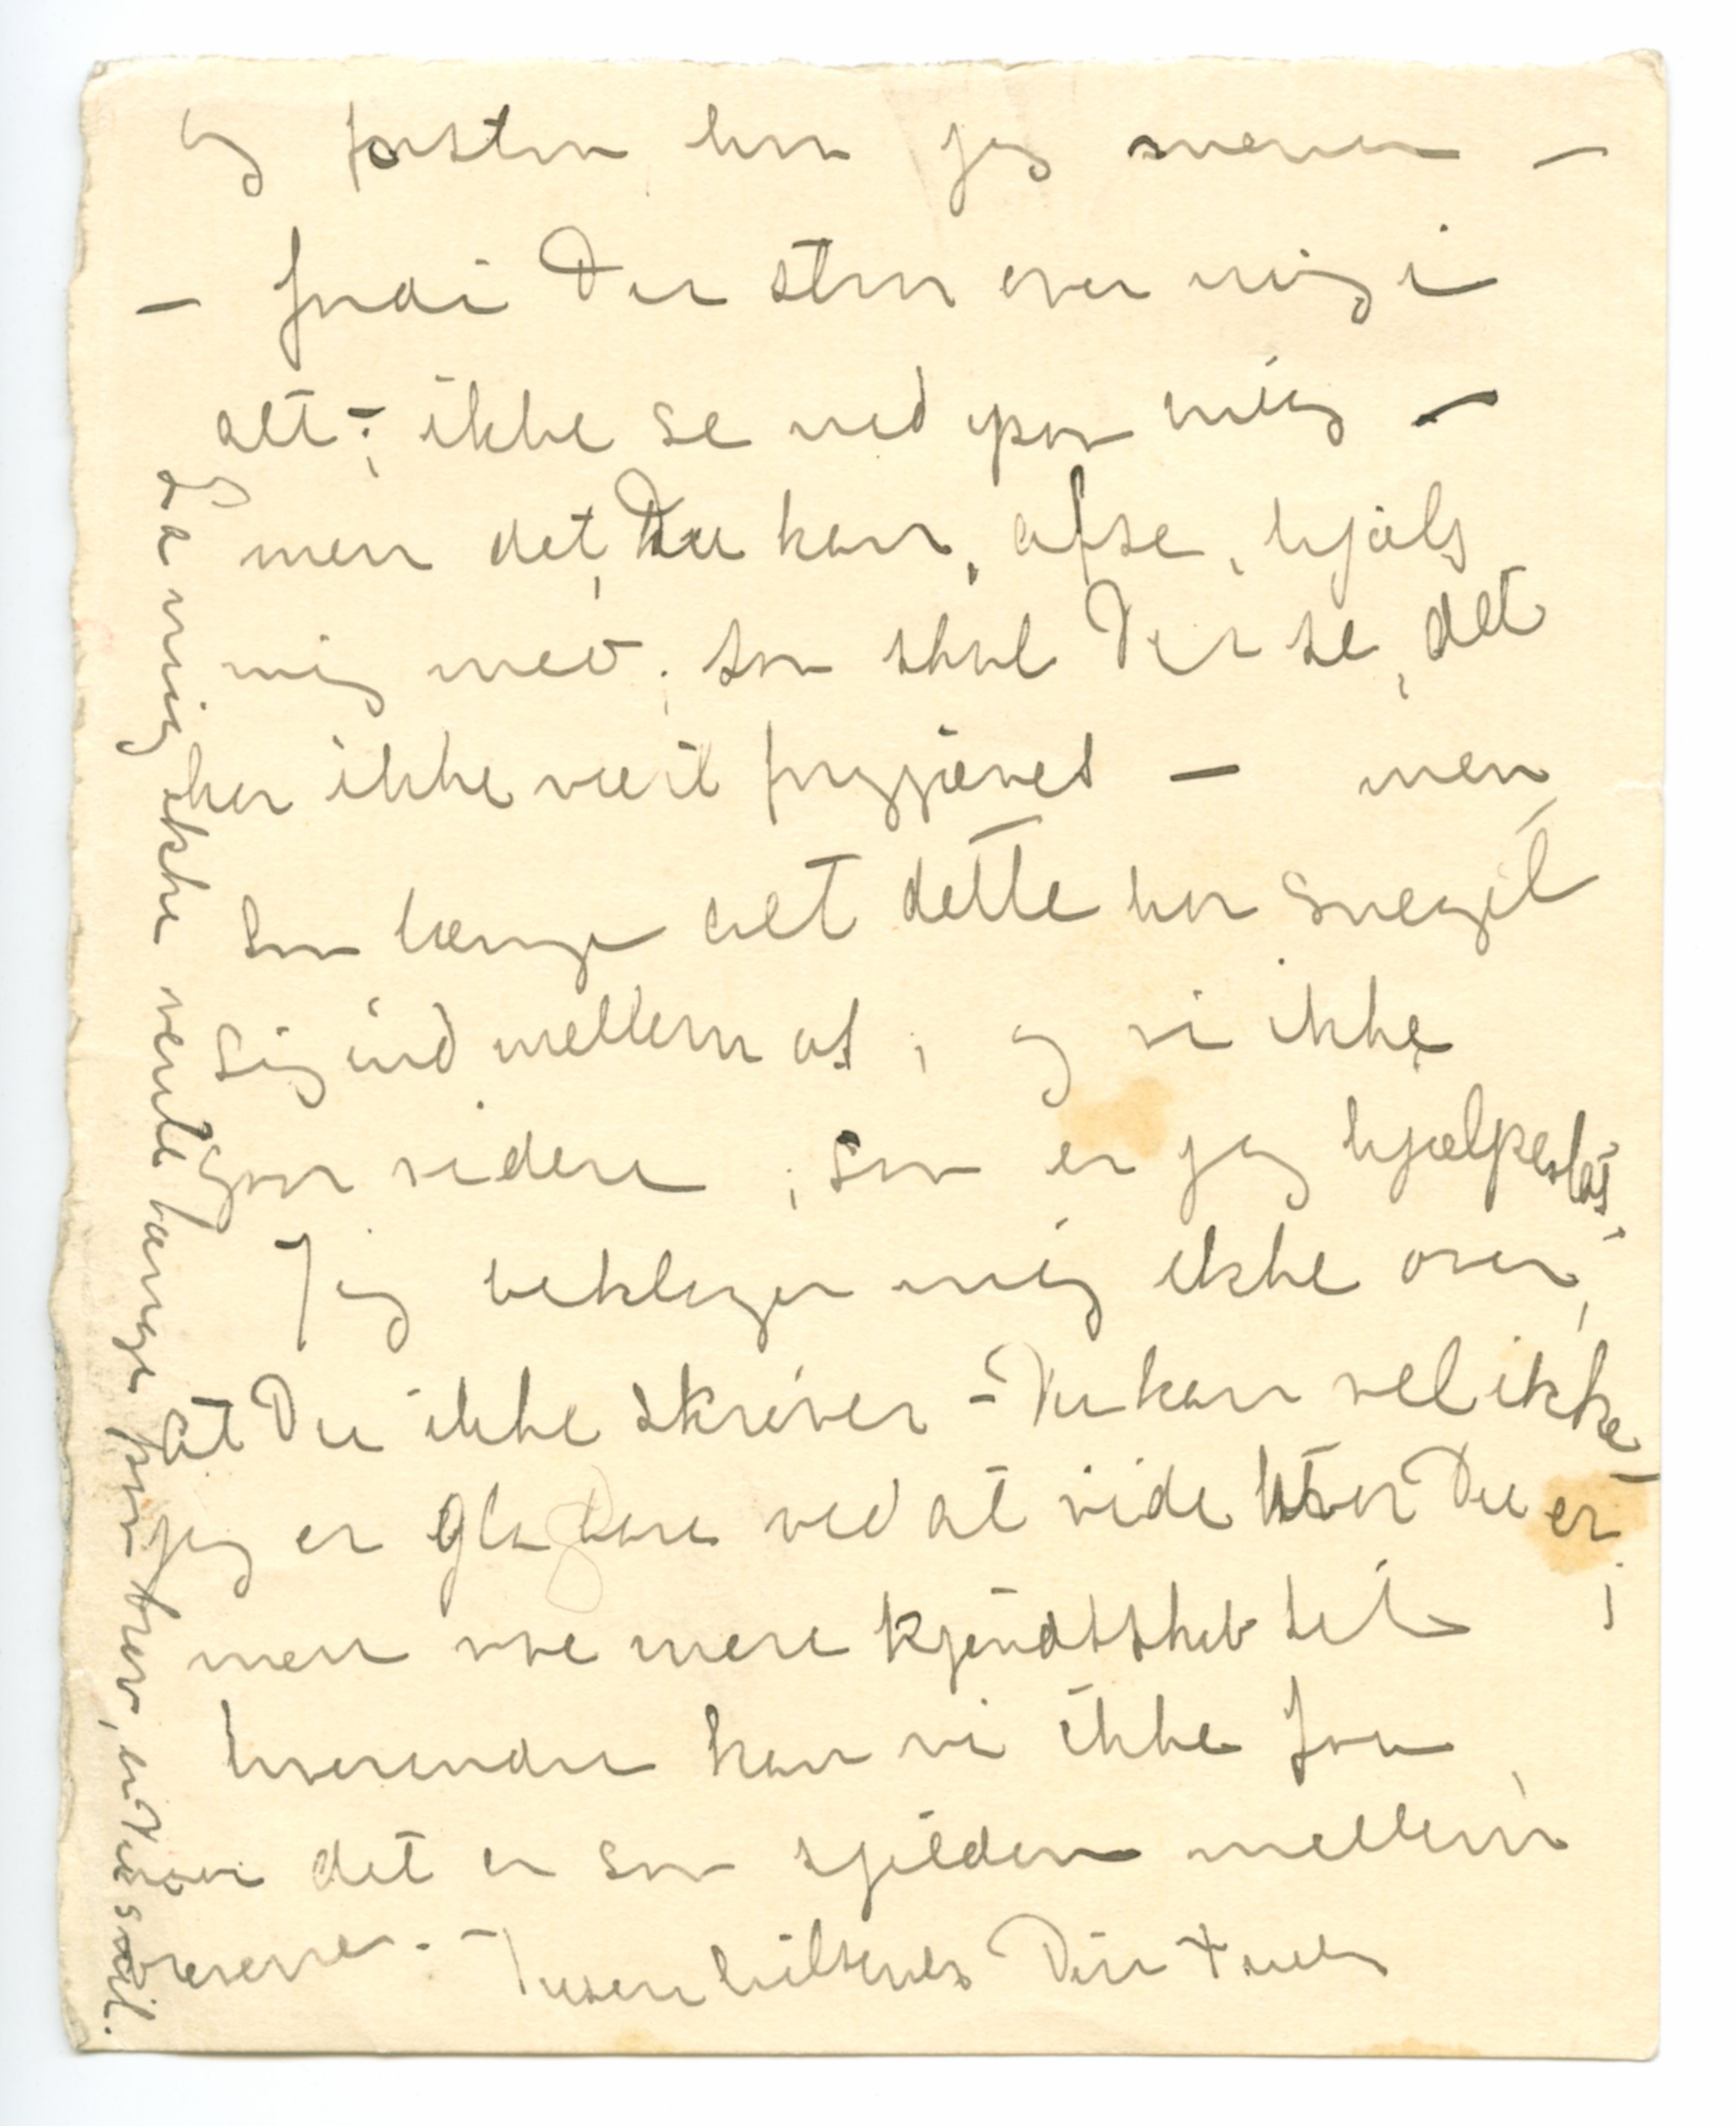 og
– fordi Du staar over mig i
alt; ikke se ned paa mig –
men det, Du kan, afse, hjælp
mig med; saa skal Du se, det
har ikke været forgjæves – men,
saa længe alt dette har sneget
sig ind mellem os, og vi ikke
gaar videre, saa er jeg hjælpesløs.
Jeg beklager mig ikke over,
at Du ikke skriver – Du kan vel ikke –
jeg er glad bare ved at vide hvor Du er;
men mere kjendskab til
hverandre kan vi ikke faa,
det er saa sjelden mellem
Tusen hilsener Din
La mig ikke vente længe paa brev, er Du snil.